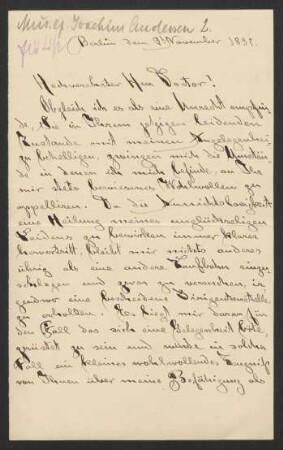 Mus. ep. Joachim Andersen 2.
Berlin den 9. November 1891.
Hochverehrter Herr Doctor!
Obgleich ich es als eine Unrecht empfin-
de, Sie in Ihrem jetzigen leidenden
Zustande mit meinen Angelegenhei-
zu behelligen, zwingen mich die Umstän-
de in denen ich mich befinde, an Ihr
mir stets bewiesenes Wohlwollen zu
appelliren. Da die Aussichtslosigkeit
eine Heilung meines unglückseligen
Leidens zu bewirken immer klarer
hervortritt, bleibt mir nichts anderes
übrig als eine andere Laufbahn einzu-
schlagen und zwar zu versuchen, ir-
gendwo eine bescheidene Dirigentenstelle
zu erhalten. Es liegt mir daran für
den Fall das sich eine Gelegenheit böte,
gerüstet zu sein und würde in solchem
Fall ein kleines wohlwollendes Zeugniss
von Ihnen über meine Befähigung als